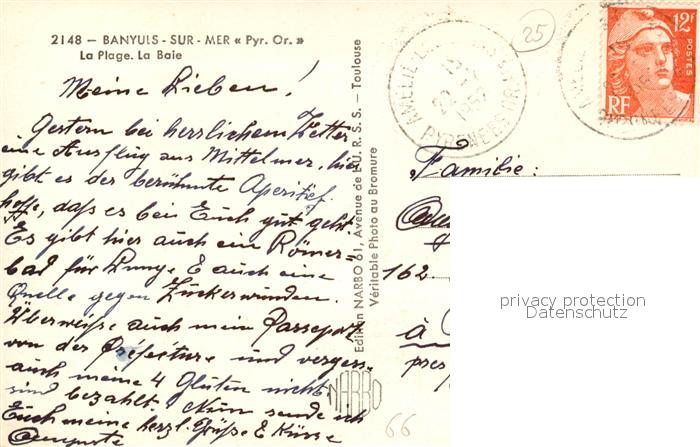 2148 — BANYULS - SUR - MER « Pyr. Or. »
La Plage. La Baie
Meine Lieben!
Gestern bei herrlichem Wetter
eine Ausflug aus Mittelmer, hier
gibt es der berühmte Aperitif.
hoffe, daß es bei Euch gut geht.
Es gibt hier auch ein Römer-
bad für Lunge & auch eine
Quelle gegen Zuckerwunden.
Überweiße auch mein Passeport
von der Préfecture und vergess
auch meine 4 Glüten nicht
sind bezahlt. Nun sende ich
Euch meine herzl. Grüße & Küsse
Auguste
Edition NARBO 61, Avenue de l'U. R. S. S. — Toulouse
Véritable Photo au Bromure
NARBO
25
AMÉLIE
22
1952
PYRENEES ORles
12F
POSTES
RF
Familie:
162
à
66
privacy protection
Datenschutz